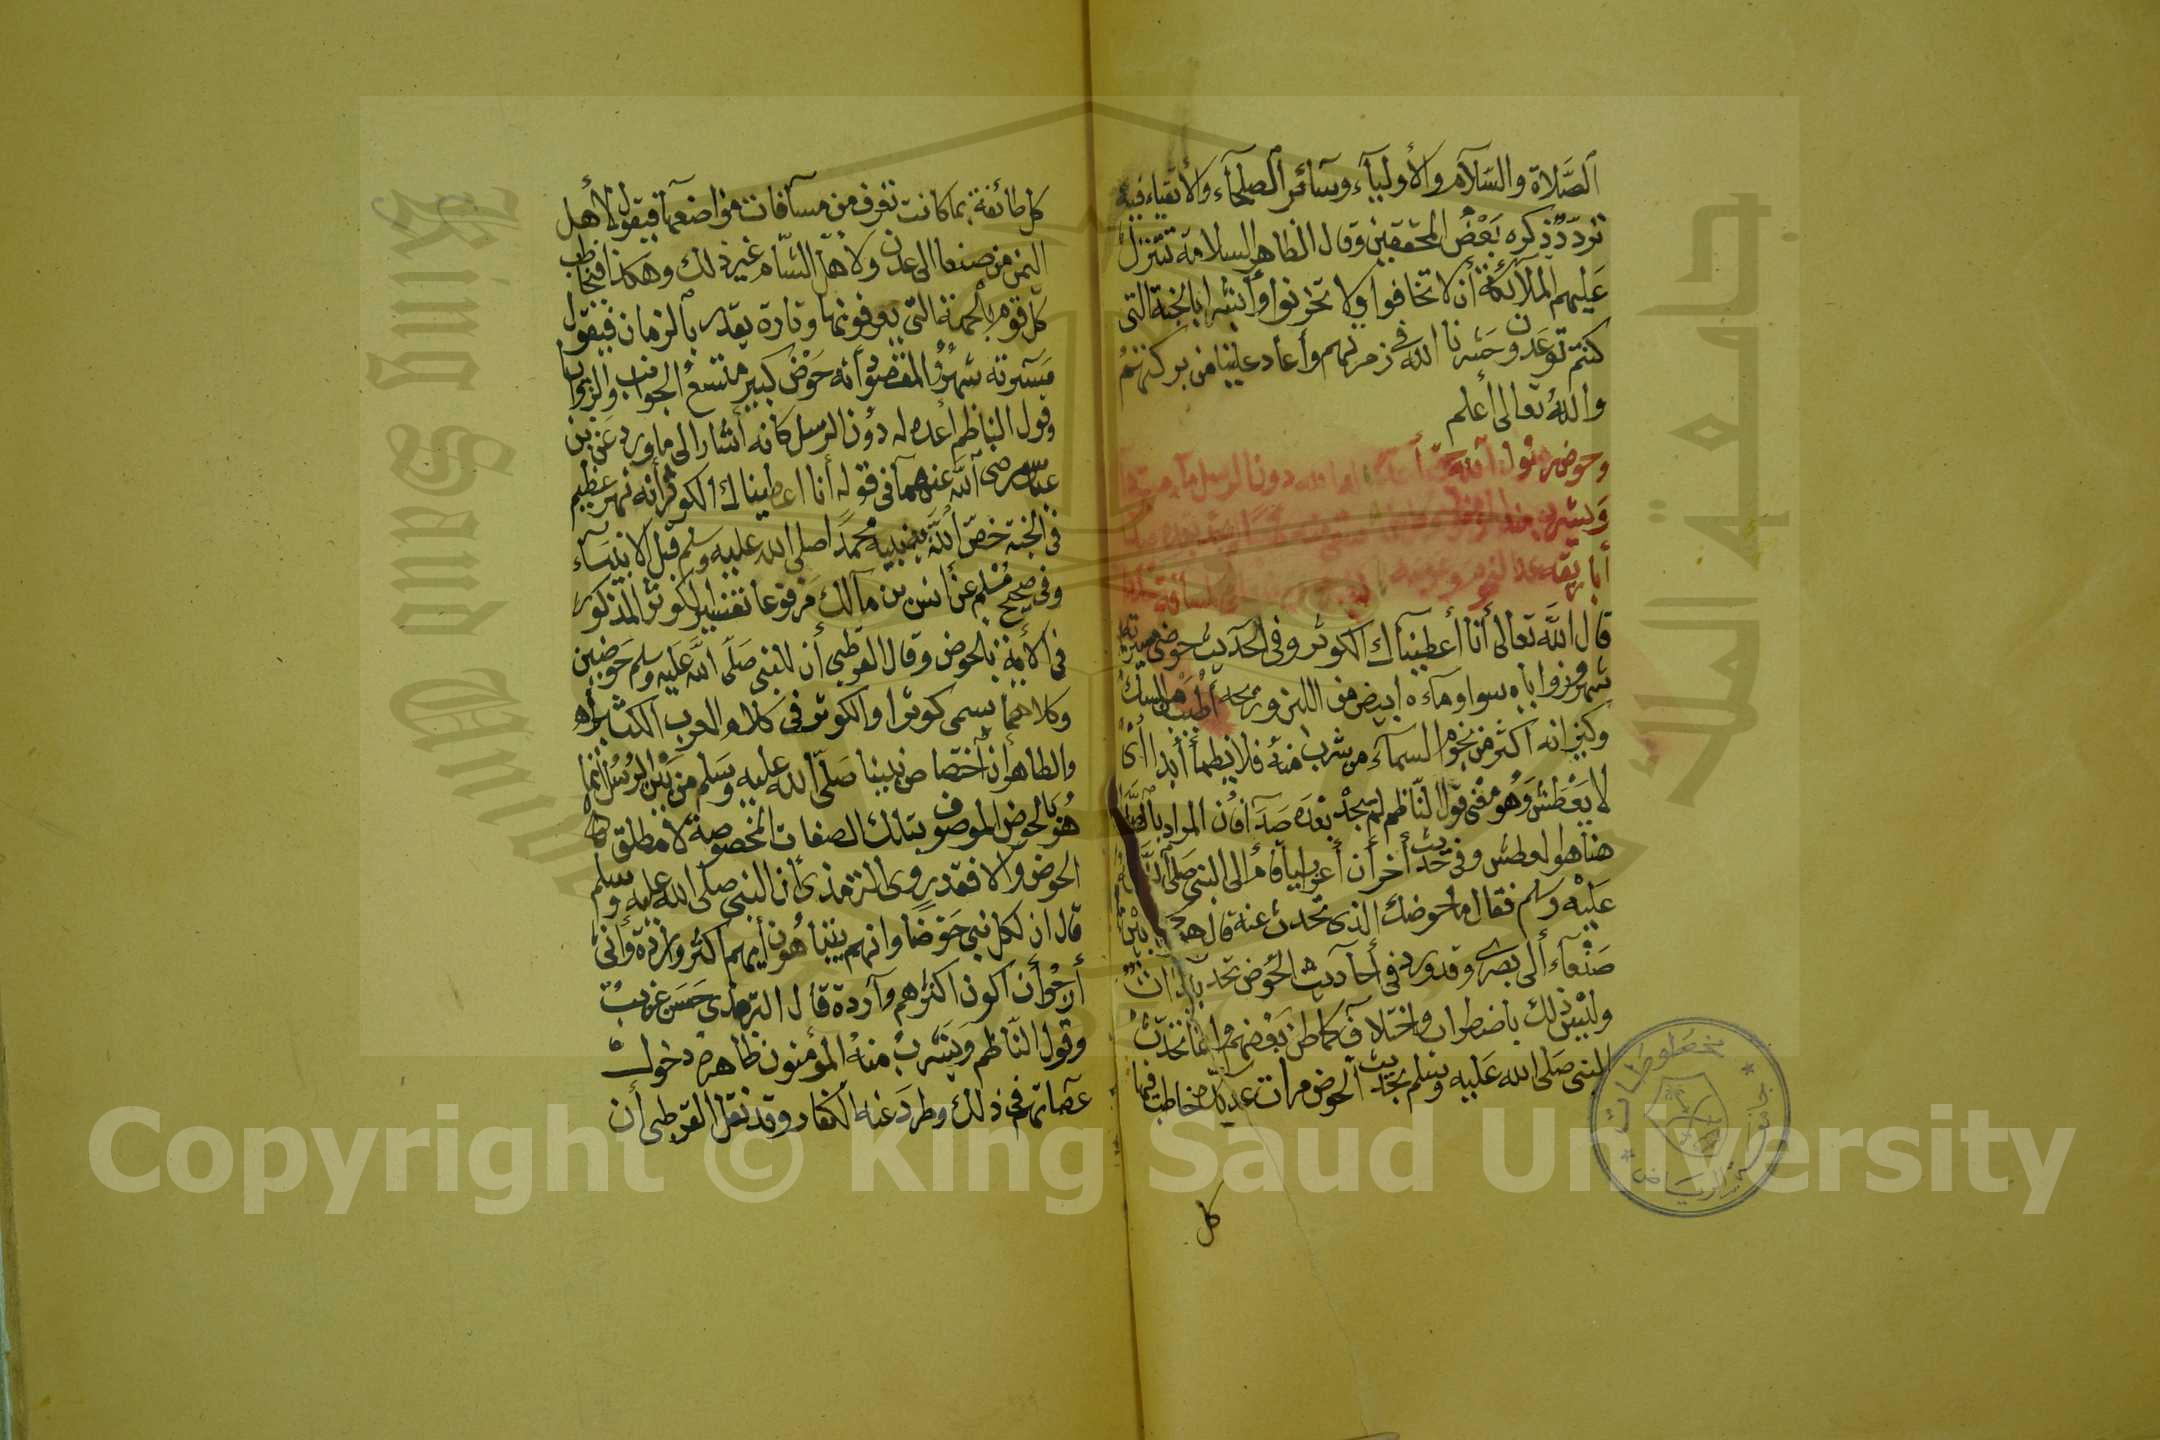 الصَّلاة والسّلآم والأوليآء وسآئر الصلحآء والأتقياء فيه
تردّد ذكره بَعْضُ المحققين وقال الظاهر السلامة تتنزل
عَليهم الملآئكة أن لا تخافوا ولا تحزنوا وأبشروا بالجنة التي
كنتم توعَدون وحَشرنا الله في زمرتهم وأعاد علينا من بركتهم
والله تعالى أعلم
وحوض رسُول الله حقّا أعده له الله دون الرسل
وَيشرب منه المؤمنون
أباريقه عد النجوم وعرضه
قال الله تعالى أنا أعطينآك الكوثر وفي الحَديث حوضي مسيرته
شهر وزواياه سوا ومآءه ابيض من اللبن وريحه أطيَب من المسك
وكيزانه اكثر من نجوم السمآء من شرب منهُ فلا يظمأ أبدا أىْ
لا يَعْطش وَهُو معْنى قوْل النّاظم لم يجدْ بعْدَه صَدَآ فأن المراد بالصَّدا
هنا هو العطش وفي حَديث أخر أن أعرابيا قام الى النبي صَلّى الله
عَليْه وسَلم فقال ما حوضك الذى تحدث عنه قال هو كما بيْن
صَنْعآء ألى بصرى وقد ورد في أحآديث الحُوْض تحديدآت
وليْس ذلك باضطراب واختلاف كما ظن بَعْضهم وانما تحدّث
النبي صَلى الله عَليه وسَلم بحَديث الحوض مرات عديدة مخاطبا فيها
كل
كل طائفة بما كانت تعرف من مسآفات مواضعهآ فيقول لأهل
اليمن من صنعا الى عدن ولأهل الشّام غير ذلك وهكذا فيخاطب
كل قوم بالجهة التي يعرفونها وتارة يقدر بالزمان فيقول
مَسيرته شهرٌ والمقصودُ أنه حَوْض كبير متسعُ الجوانب والزوايا
وقول الناظم أعده له دُون الرسل كانه أشار الى ما ورد عَن بن
عباس رضى الله عنهمآ في قوله أنا اعطيناك الكوثر أنه نهر عظيم
في الجنة خصّ اللَّه به نبيه محمداً صلى الله عليه وسلم قبل الانبيَآء
وفي صحيح مُسْلم عن أنس بن مآلك مرفوعا تفسير الكوثر المذكور
في الأية بالحوض وقال القرطبي أن للنبي صَلّى اللَّه عَليه وسلم حَوضين
وكلاهمَا يسمى كوثرا والكوثر في كلام العرب الكثير أه
والظاهر أن آختصاص نبينا صَلّى الله عليه وسَلم من بَيْن الرسُل انما
هُوَ بالحوض الموصوف بتلك الصفات المخصوصة لا مطلق
الحوض وآلا فقد روى الترمذى أن النبي صلى الله عليه وسلم
قال ان لكل نبي حَوْضاً وانهم يتباهُون أيهم اكثر وارْدَة وأنى
أرجُوْ أن آكون اكثرهم وآردة قال الترمذى حَسَن غريبٌ
وقول النّاظم وَيَشْربُ منهُ المؤمنون ظاهره دخول
عصَاتهم في ذلك وطردَ عنه الكفار وقد نقل القرطبي أن
جامعة الملك سعود
King Saud University
مخطوطات
جامعة الرياض
Copyright © King Saud University